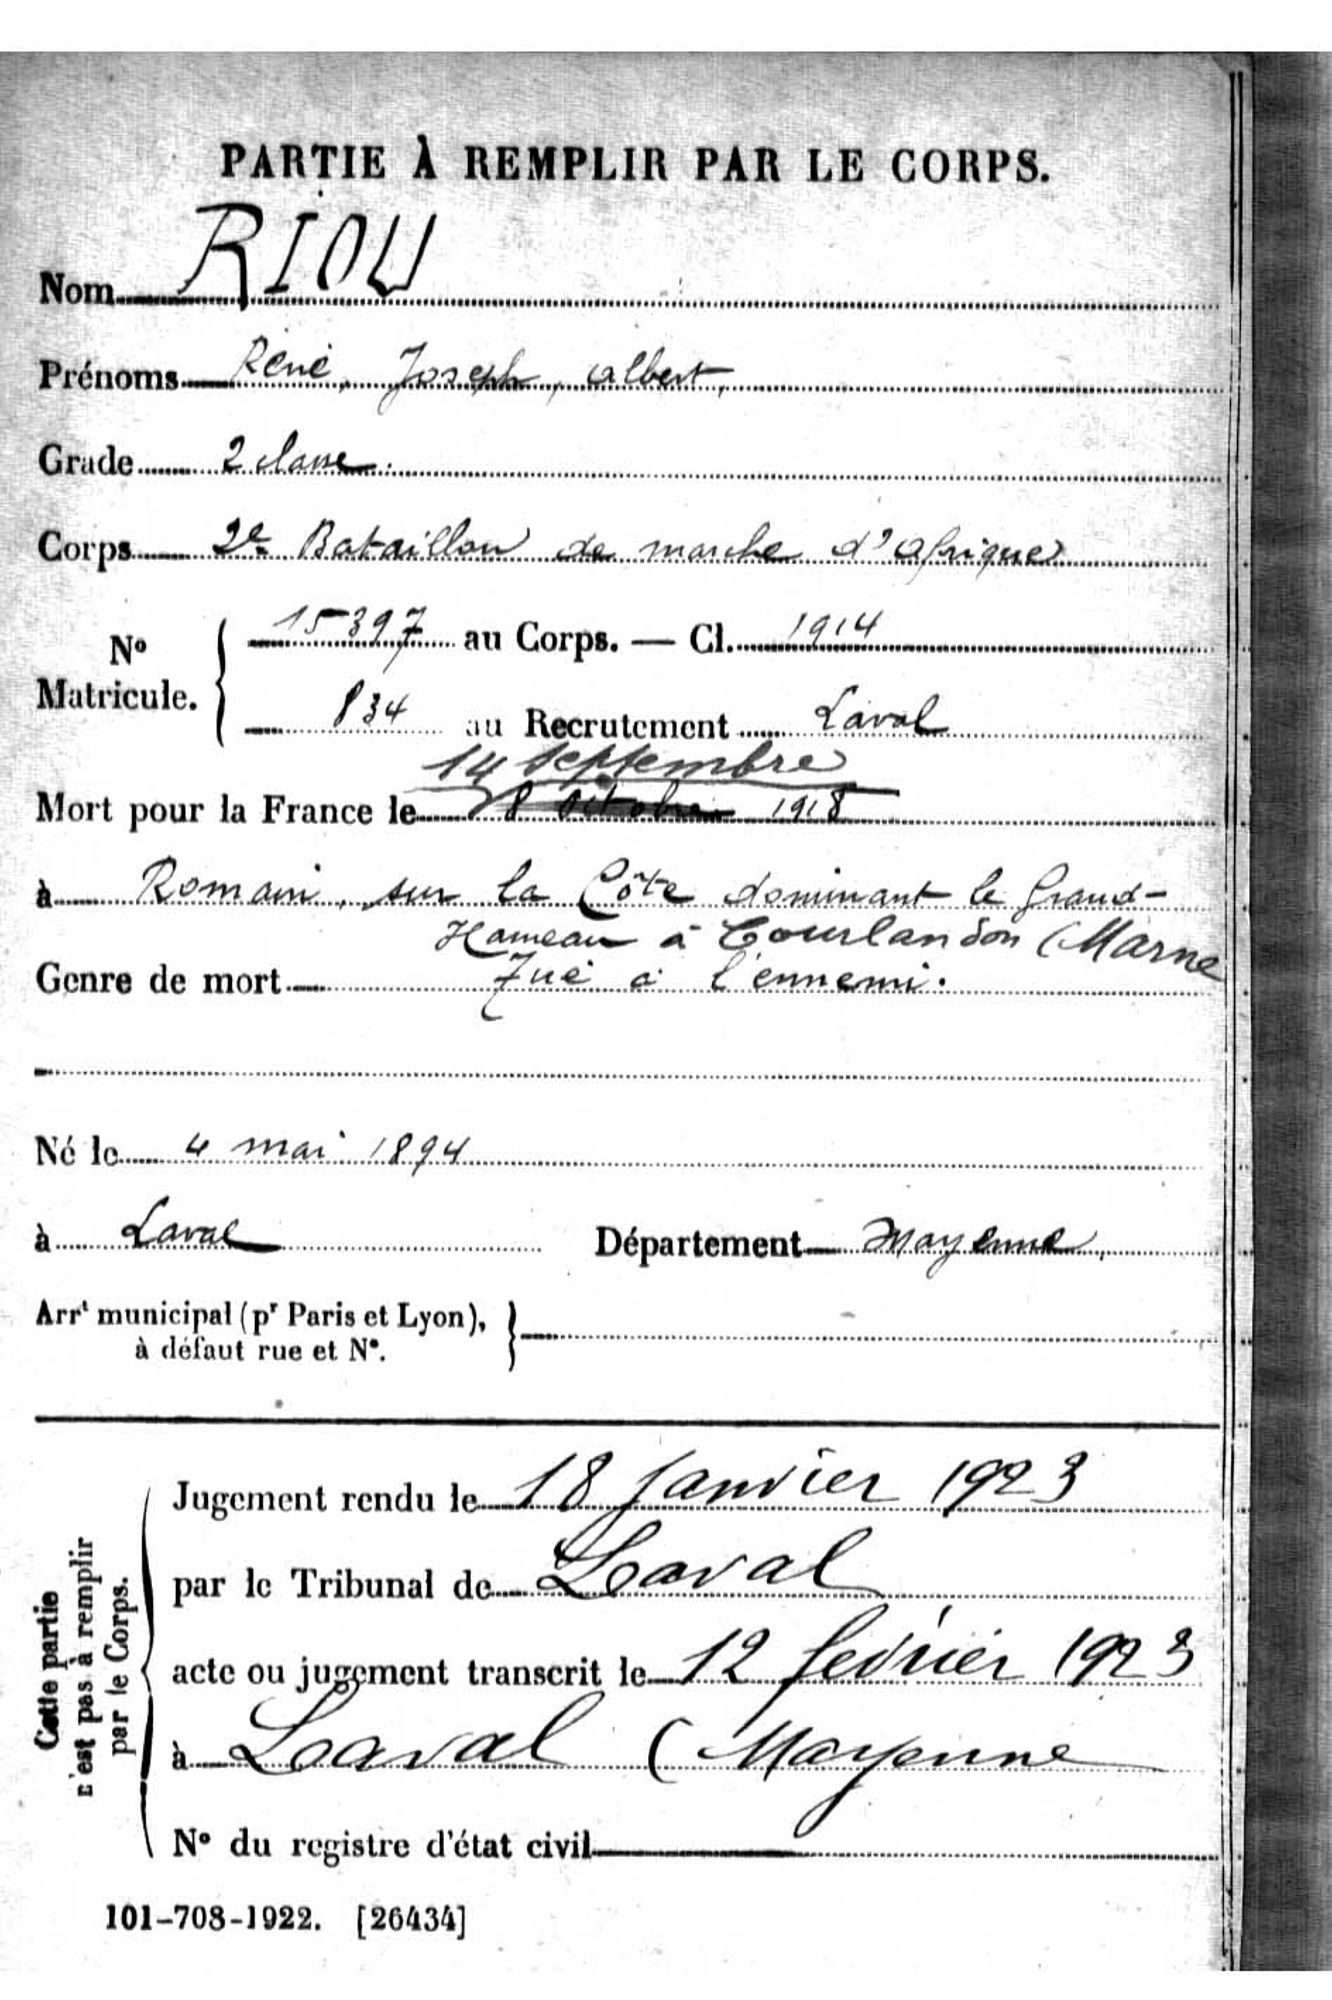 PARTIE À REMPLIR PAR LE CORPS.
Nom RIOU
Prénoms René, Joseph, Albert,
Grade 2 classe.
Corps 2e Bataillon de marche d'Afrique
No Matricule. { 15397 au Corps. — Cl. 1914
834 au Recrutement Laval
14 Septembre
Mort pour la France le 8 octobre 1918
à Romain, sur la Côte dominant le Grand-
Hameau à Courlandon (Marne
Genre de mort Tué à l'ennemi.
Né le 4 mai 1894
à Laval Département Mayenne,
Arrt municipal (pr Paris et Lyon),
à défaut rue et No.
Jugement rendu le 18 Janvier 1923
par le Tribunal de Laval
acte ou jugement transcrit le 12 février 1923
à Laval (Mayenne
No du registre d'état civil
Cette partie
n'est pas à remplir
par le Corps.
101-708-1922. [26434]